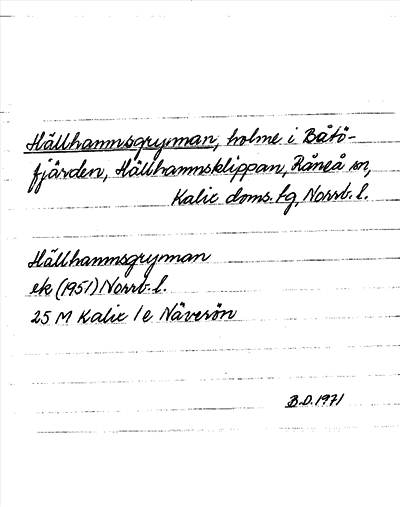 Hällhamnsgrynnan, holme i Båtö-
fjärden, Hällhamnsklippan, Råneå sn,
Kalix doms. lg, Norrb. l.
Hällhamnsgrynnan
ek (1951) Norrb. l.
25 M Kalix 1 e Näverön
B.D. 1971